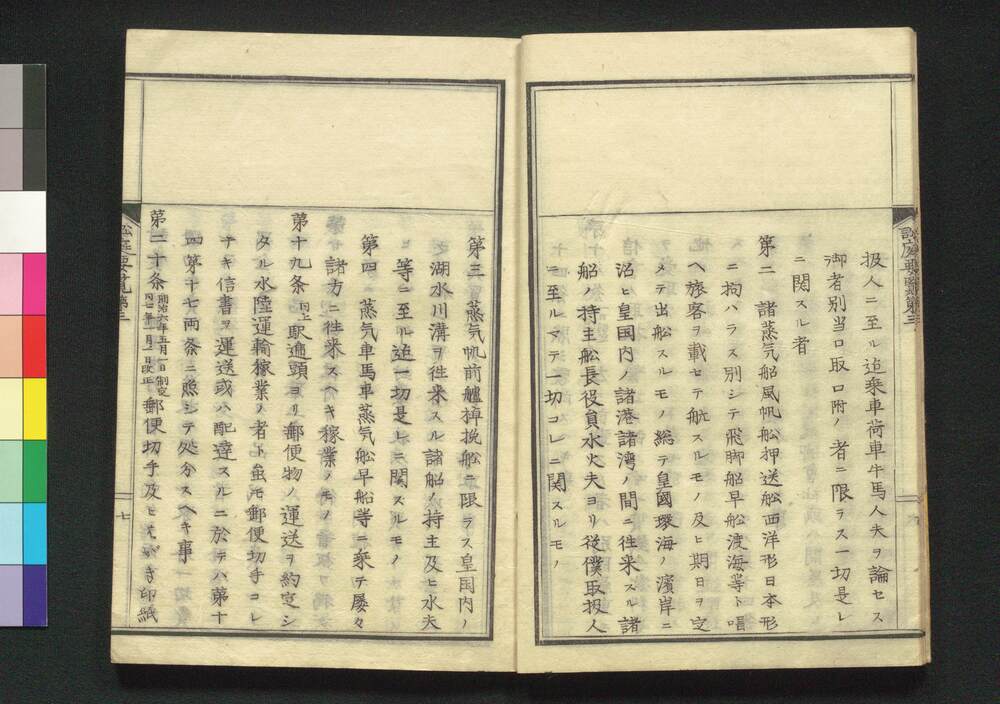 訟庭要覧第三
扱人ニ至ル迠乗車荷車牛馬人夫ヲ論セス
御者別当口取口附ノ者ニ限ラス一切是レ
ニ関スル者
第二 諸蒸気船風帆船押送舩西洋形日本形
ニ拘ハラス別シテ飛脚船早舩渡海等ト唱
ヘ旅客ヲ載セテ航スルモノ及ヒ期日ヲ定
メテ出船スルモノ総テ皇國環海ノ濱岸ニ
沿ヒ皇国内ノ諸港諸湾ノ間ニ往来スル諸
船ノ持主舩長役員水火夫ヨリ従僕取扱人
ニ至ルマテ一切コレニ関スルモノ
第三 蒸気帆前艫棹挽舩ニ限ラス皇国内ノ
湖水川溝ヲ往来スル諸船ノ持主及ヒ水夫
等ニ至ル迠一切是レニ関スルモノ
第四 蒸気車馬車蒸気舩早船等ニ乗テ屡々
諸方ニ往来スヘキ稼業ノモノ
第十九条 同上 駅逓頭ヨリ郵便物ノ運送ヲ約定シ
タル水陸運輸稼業ノ者ト虽モ郵便切手コレ
ナキ信書ヲ運送或ハ配達スルニ於テハ第十
四第十七両条ニ照シテ処分スヘキ事
第二十条 明治六年五月一日制定 同七年一月一日改正 郵便切手及ヒはがき印紙
訟庭要覧第三
七